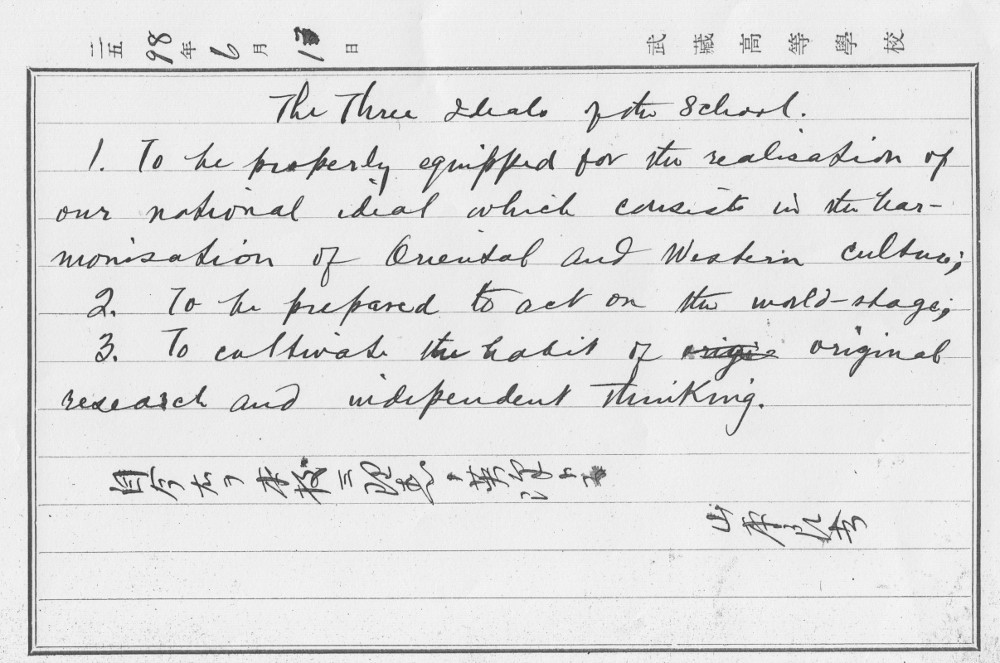 二五98年6月1日
武藏高等學校
The Three Ideals of the School.
1. To be properly equipped for the realisation of
our national ideal which consists in the har-
monisation of Oriental and Western culture;
2. To be prepared to act on the world-stage;
3. To cultivate the habit of original
research and independent thinking.
本校三
山本